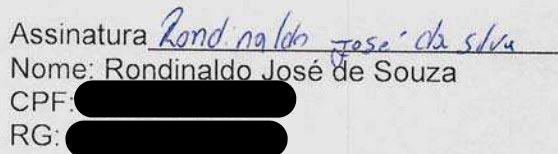 Assinatura Rondinaldo José da silva
Nome: Rondinaldo José de Souza
CPF:
RG: